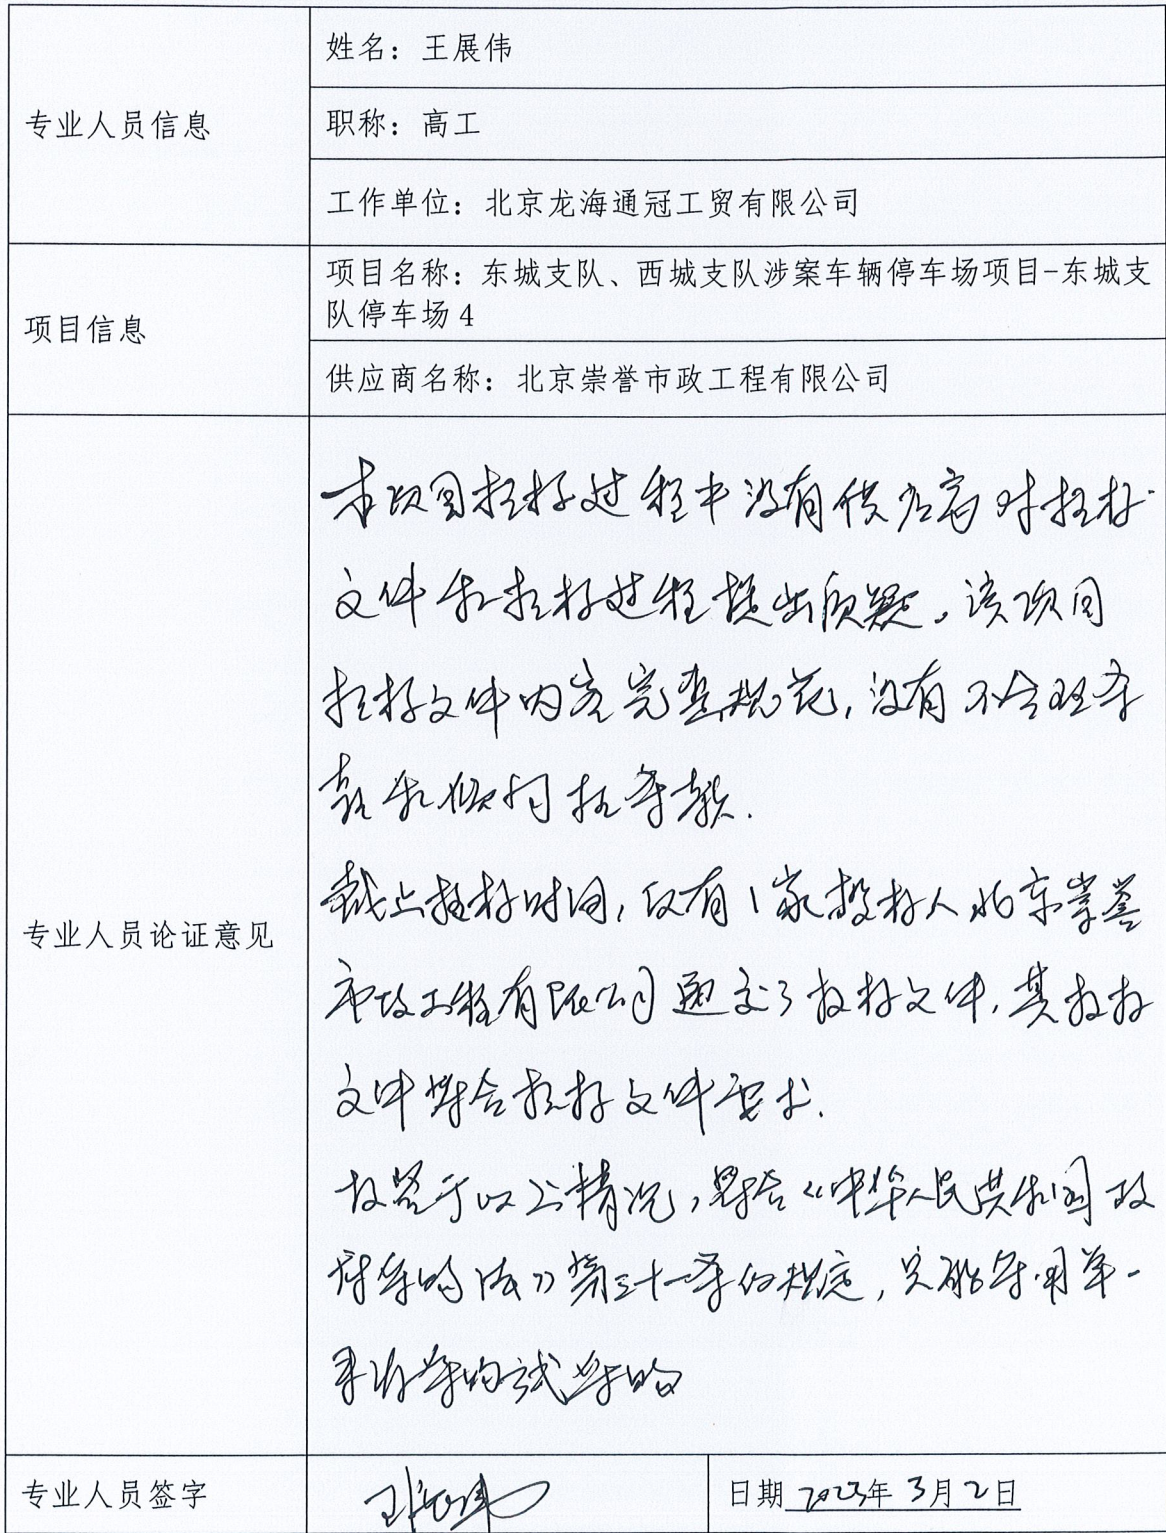 专业人员信息
姓名：王展伟
职称：高工
工作单位：北京龙海通冠工贸有限公司
项目信息
项目名称：东城支队、西城支队涉案车辆停车场项目-东城支
队停车场4
供应商名称：北京崇誉市政工程有限公司
专业人员论证意见
本项目招标过程中没有供应商对招标
文件和招标过程提出质疑。该项目
招标文件内容完整规范，没有不合理条
款和倾向性条款.
截止投标时间，仅有1家投标人北京崇誉
市政工程有限公司递交了投标文件，其投标
文件符合招标文件要求.
故鉴于以上情况，符合《中华人民共和国政
府采购法》第三十一条的规定，只能采用单一
来源采购方式采购
专业人员签字
王展伟
日期 2023年3月2日